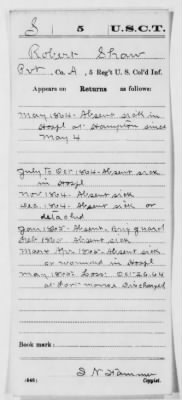 S 5 U.S.C.T.
Robert Shaw
Pvt, Co. A, 5 Reg't U. S. Col'd Inf.
Appears on Returns as follows:
May 1864. Absent sick in
Hospl at Hampton since
May 4
July to Oct 1864. Absent sick
in Hospl
Nov 1864. Absent sick
Dec. 1864. Absent sick or
detached
Jany 1865. Absent
Feb 1865. Absent sick
Mar & Apr 1865. Absent sick
or wounded in Hospl
May 1865. Loss:
at Discharged
Book mark:
(546)
Copyist.